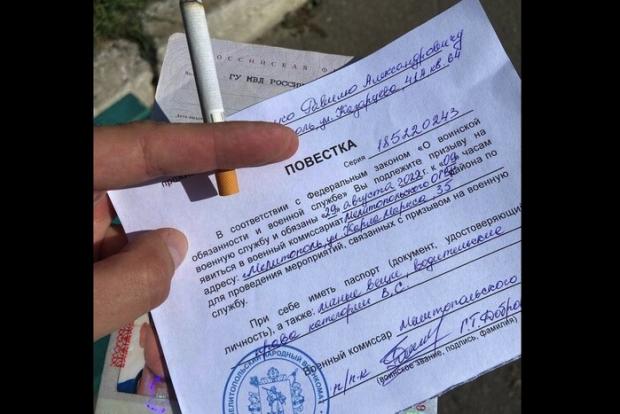 РОССИЙСКАЯ Ф
ГУ МВД РОССИ
Равилю Александровичу
ул. Казарцева 41А кв. 64
ПОВЕСТКА
Серия 185220243
В соответствии с Федеральным законом «О воинской
обязанности и военной службе» Вы подлежите призыву на
военную службу и обязаны «29» августа 2022 г. к «09» часам
явиться в военный комиссариат Мелитопольского района по
адресу: г. Мелитополь ул. Карла Маркса 35
для проведения мероприятий, связанных с призывом на военную
службу.
При себе иметь паспорт (документ, удостоверяющий
личность), а также: вещи, водительские
права категории В.С.
Военный комиссар
п/п-к
(воинское звание, подпись, фамилия)
МЕЛИТОПОЛЬСКИЙ НАРОДНЫЙ ВОЕНКОМАТ